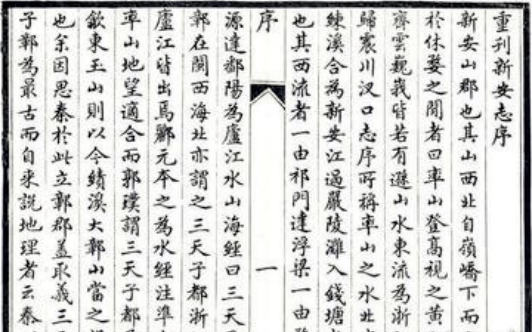 重刊新安志序
新安山郡也其山西北自嶺嶠下而
於休婺之間者曰率山登高視之黃
齊雲巍峩皆若有避山水東流為浙
歸震川汊口志序所稱率山之水北
練溪合為新安江過嚴陵灘入錢塘
也其西流者一由祁門達浮梁一由
序
一
源達鄱陽為廬江水山海經曰三天
鄣在閩西海北亦謂之三天子都浙
廬江皆出焉酈元本之為水經注準
率山地望適合而郭璞謂三天子都
歙東玉山則以今績溪大鄣山當之
也余因思秦於此立鄣郡蓋取義三
子鄣為最古而自來說地理者云秦